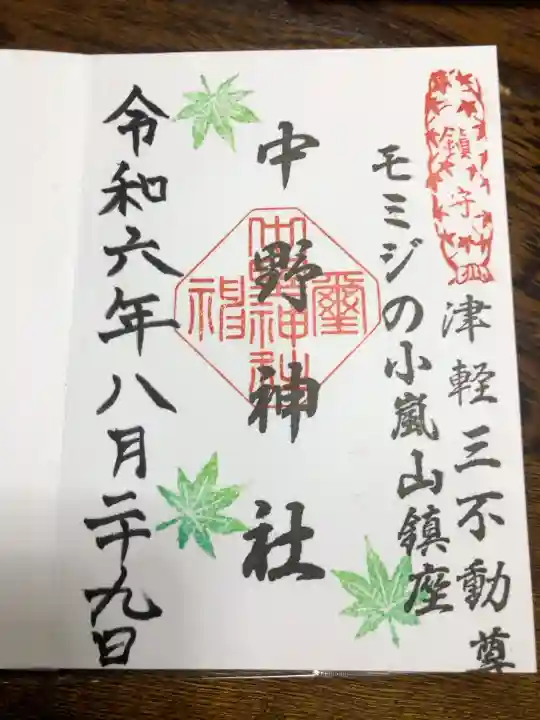 鎮守
津軽三不動尊
モミジの小嵐山鎮座
中野神社
令和六年八月二十九日